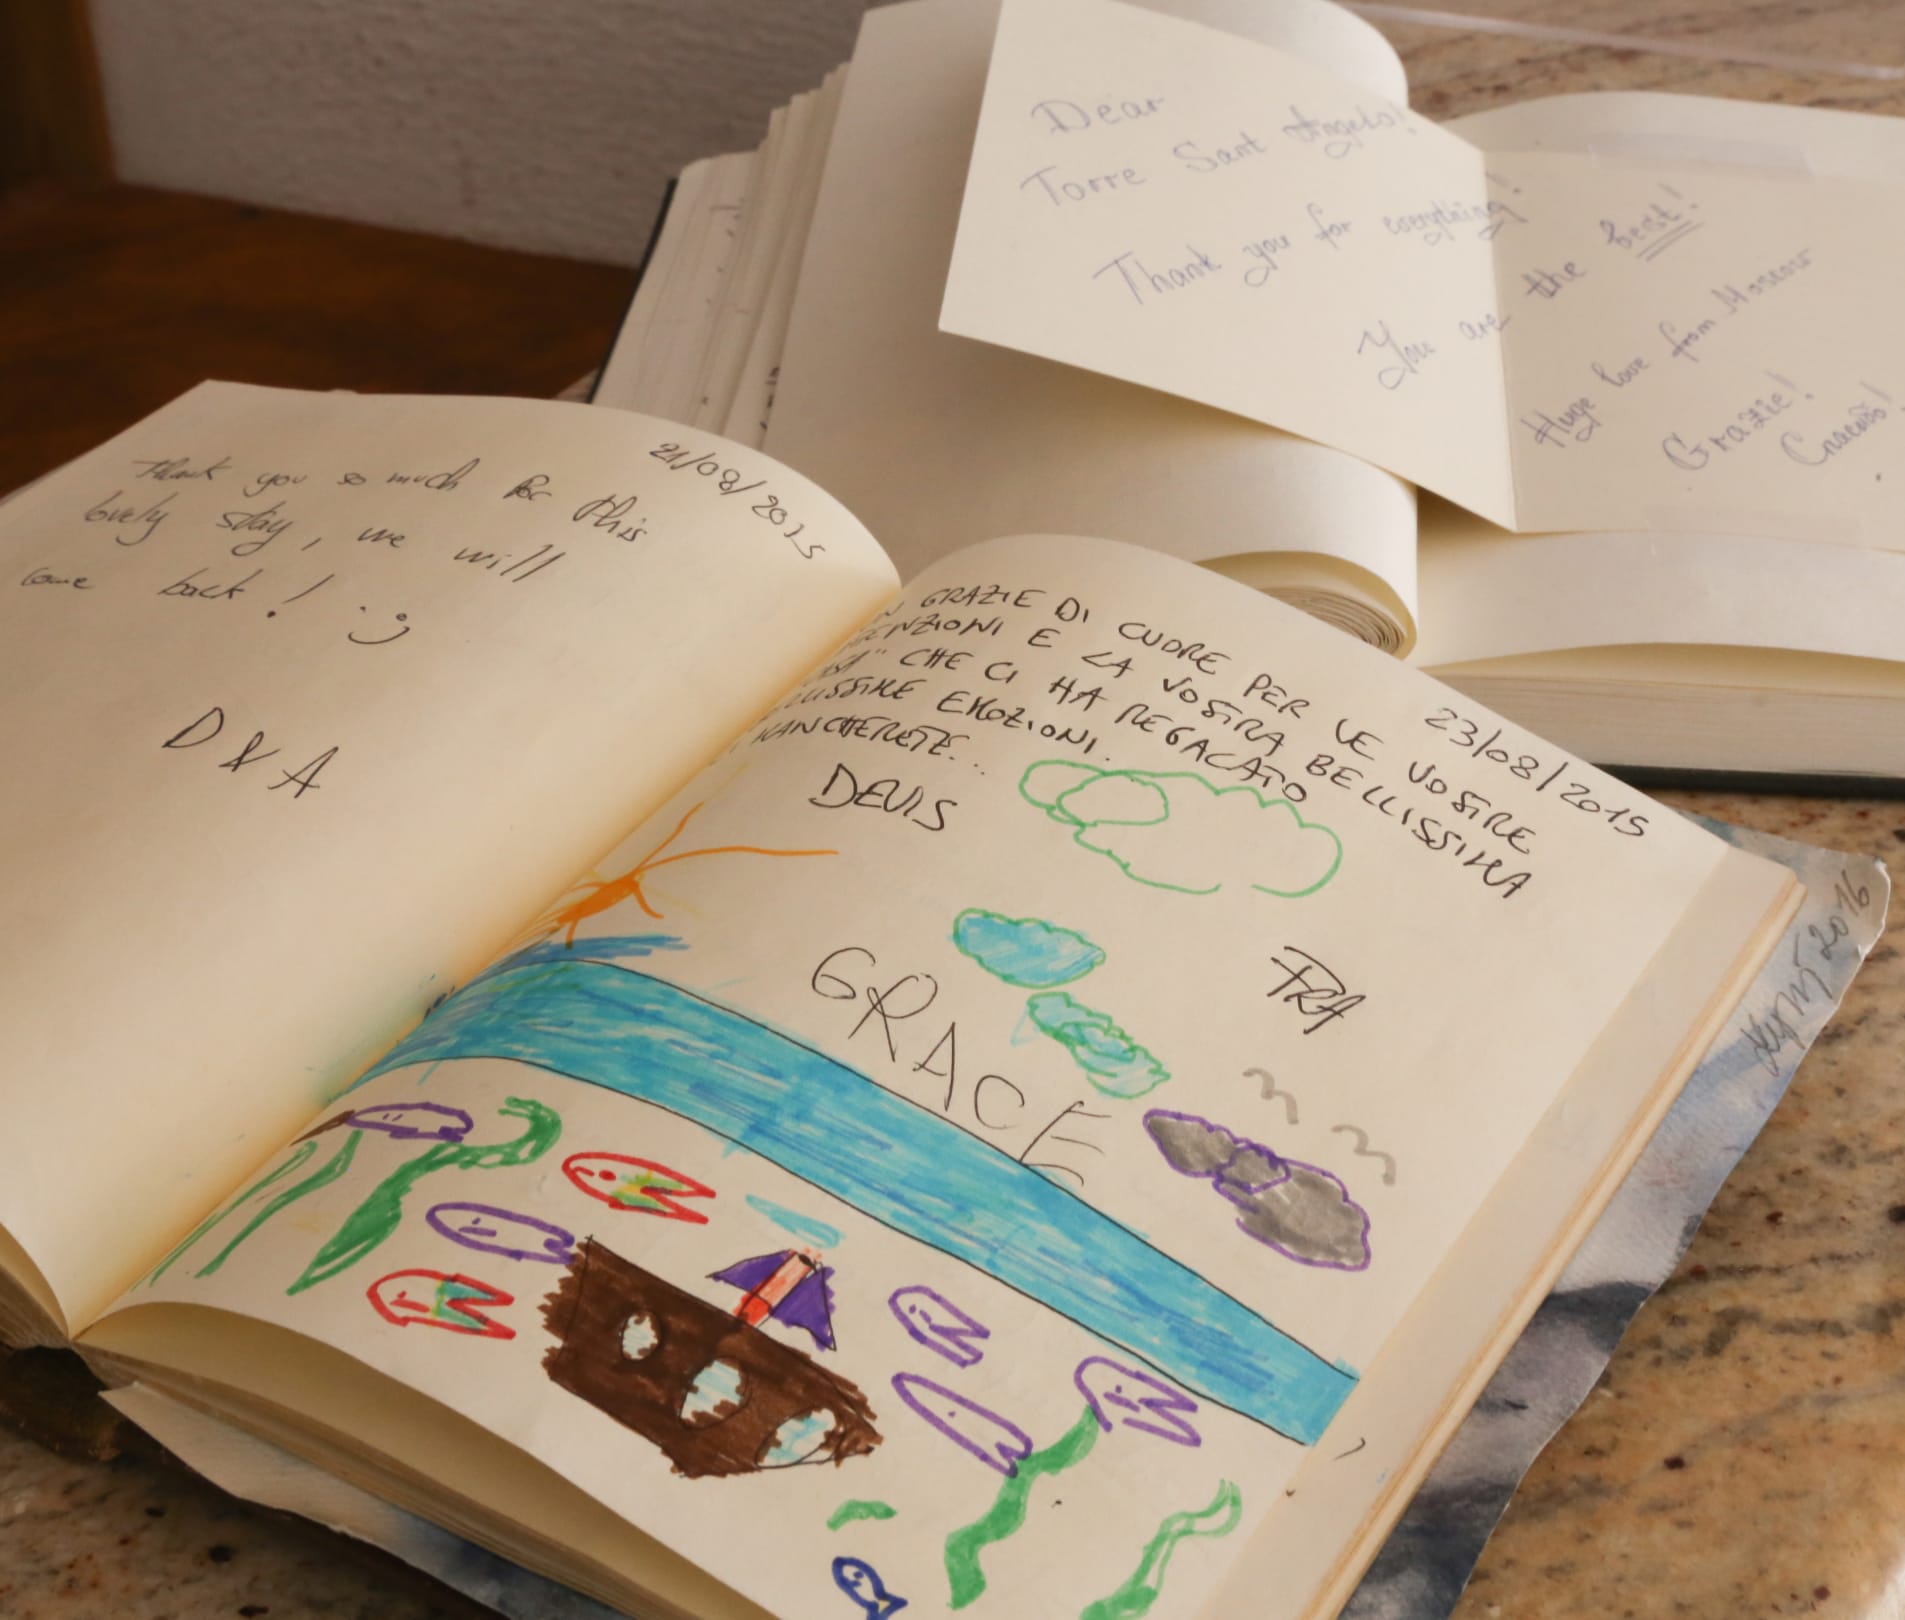 Dear
Torre Sant Angelo!
Thank you for everything!
You are the best!
Huge love from Moscow
Grazie!
Спасибо!
21/08/2015
Thank you so much for this
lovely stay, we will
come back! :)
D & A
23/08/2015
GRAZIE DI CUORE PER LE VOSTRE
E LA VOSTRA BELLISSIMA
CHE CI HA REGALATO
EMOZIONI.
MANCHERETE...
DEVIS
GRACE
FRA
2016